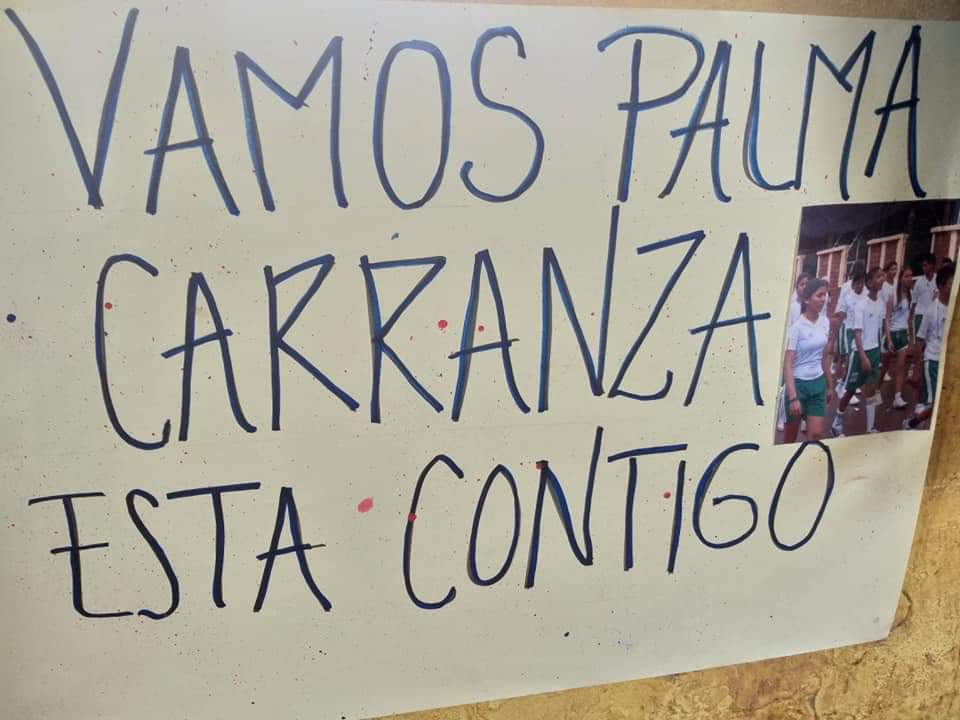 VAMOS PALMA
CARRANZA
ESTA CONTIGO